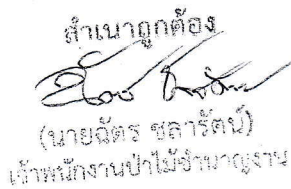 สำเนาถูกต้อง
(นายฉัตร ชลารัตน์)
เจ้าพนักงานป่าไม้ชำนาญงาน